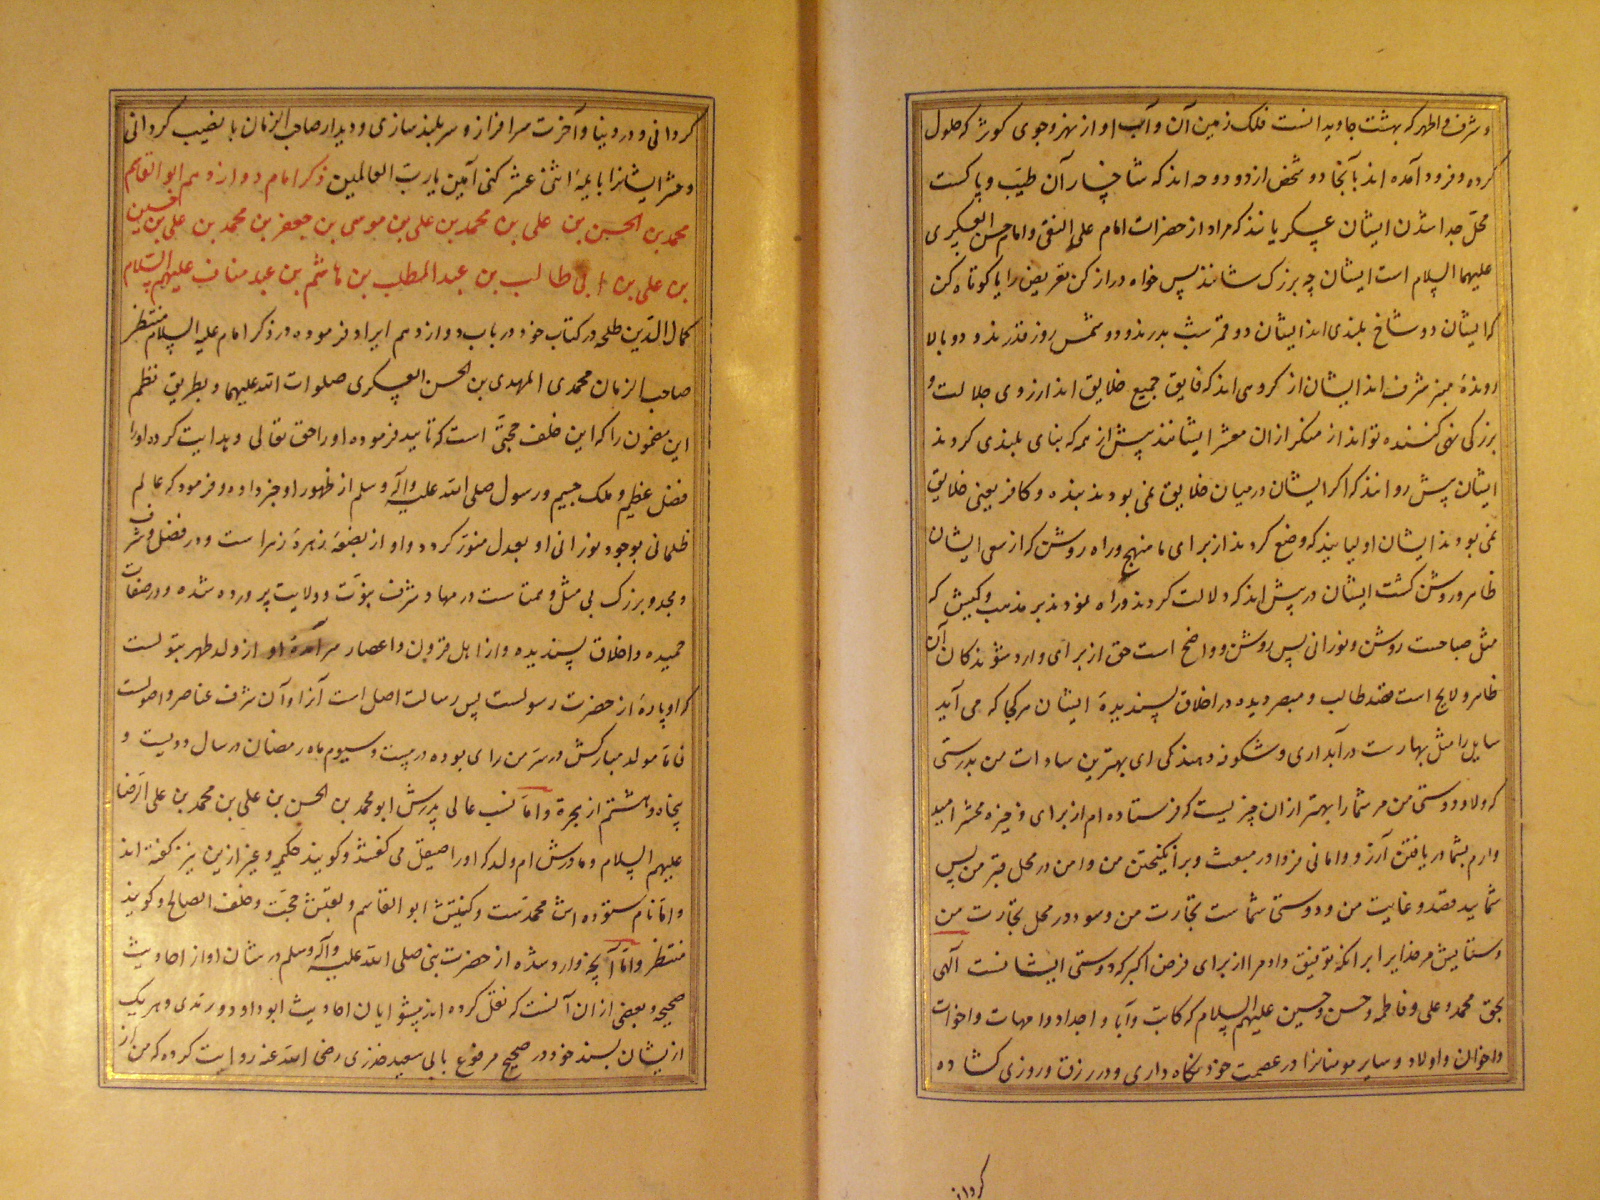 و شرف و اطهر که بهشت جاویدانست فلک زمین آن و آب او از نهر و جوی کوثر که حلول
کرده و فرود آمده اند بآنجا دو شخص از دو دوحه اند که شاخسار آن طیّب و پاکست
محلّ جدا شدن ایشان عسکریانند که مراد از حضرات امام علی النقی و امام حسن العسکری
علیهما السلام است ایشان چه بزرک شانند پس خواه دراز کن تعریض را یا کوتاه کن
که ایشان دو شاخ بلندی اند ایشان دو قمر شب بدرند و دو شمس روز قدرند و دو بالا
روندهٔ منبر شرف اند ایشان از کروهی اند که فایق جمیع خلایق اند ارزوی جلالت و
بزرکی نفی کننده تواند از منکر ازان معشر ایشانند پیش از همه که بنای بلندی کردند
ایشان پیش رو انند که اکر ایشان در میان خلایق نمی بودند بنده و کافر یعنی خلایق
نمی بودند ایشان اولیایند که وضع کردند از برای ما منهج و راه روشن که از سعی ایشان
ظاهر و روشن کشت ایشان در پیش اند که دلالت کردند و راه نمودند بر مذهب و کیش که
مثل صباحت روشن و نورانی پس روشن و واضح است حق از برای وارد شوندکان آن
ظاهر و لایح است قصد طالب و مبصر دیده در اخلاق پسندیدهٔ ایشان هر کجا که می آید
سایل را مثل بهارست در آبداری و شکوفه دهندکی ای بهترین سادات من بدرستی
که ولا و دوستی من مر شما را بهتر ازان چیزیست که فرستاده ام از برای ذخیره محشر امید
دارم بشما دریافتن آرزو و امانی فردا در مبعث و بر انکیختن من و امن در محل قبر من پس
شمایید قصد و غایت من و دوستی شماست تجارت من و سود در محل تجارت من
و ستایش مر خدایرا بر انکه توفیق داد مرا از برای فرض اکبر که دوستی ایشانست آلهی
بحق محمد و علی و فاطمه و حسن و حسین علیهم السلام که کاتب و آبا و اجداد و امهات و اخوات
و اخوان و اولاد و سایر مومنانرا در عصمت خود نکاه داری و در رزق و روزی کشاده
کردانی
کردانی و در دنیا و آخرت سرافراز و سربلند سازی و دیدار صاحب الزمان با نصیب کردانی
و حشر ایشانرا با ایمهٔ اثنی عشر کنی آمین یا ربّ العالمین ذکر امام دوازدهم ابو القاسم
محمد بن الحسن بن علی بن محمد بن علی بن موسی بن جعفر بن محمد بن علی بن حسین
بن علی بن ابی طالب بن عبد المطلب بن هاشم بن عبد مناف علیهم السلام
کمال الدّین طلحه در کتاب خود در باب دوازدهم ایراد فرموده در ذکر امام علیه السلام منتظر
صاحب الزمان محمدی المهدی بن الحسن العسکری صلوات الله علیهما و بطریق نظم
این مضمون را که این خلف حجتی است که تایید فرموده او را حق تعالی و هدایت کرده اورا
فضل عظیم و ملک جسیم و رسول صلی الله علیه وآله وسلم از ظهور او خبر داده و فرمود که عالم
ظلمانی بوجود نورانی او بعدل منوّر کردد و او از بضعهٔ زهرهٔ زهراست و در فضل و شرف
و مجد و بزرک بی مثل و همتاست در مهاد شرف نبوّت و ولایت پرورده شده و در صفات
حمیده و اخلاق پسندیده و از اهل قرون و اعصار سرآمدهٔ او از ولد طهر بتولست
که او پارهٔ از حضرت رسولست پس رسالت اصل است آنرا و آن شرف عناصر و اصولست
فامّا مولد مبارکش در سرّ من رای بوده در بیست و سیوم ماه رمضان در سال دویست و
پنجاه و هشتم از هجرة و امّا نسب عالی پدرش ابو محمد بن الحسن بن علی بن محمد بن علی الرّضا
علیهم السلام و مادرش ام ولد که اورا صیقل می کفتند و کویند حکیمی و غیر ازین نیز کفته اند
و امّا نام ستوده اش محمدست و کنیتش ابو القاسم و لقبش حجّت و خلف الصالح و کویند
منتظر و امّا آنچه وارد شده از حضرت نبی صلی الله علیه وآله وسلم در شان او از احادیث
صحیحه و بعضی ازان آنست که نقل کرده اند پیشوایان احادیث ابو داود و ترمذی و هر یک
ازیشان بسند خود در صحیح مرفوع بابی سعید خدری رضی الله عنه روایت کرده که من از